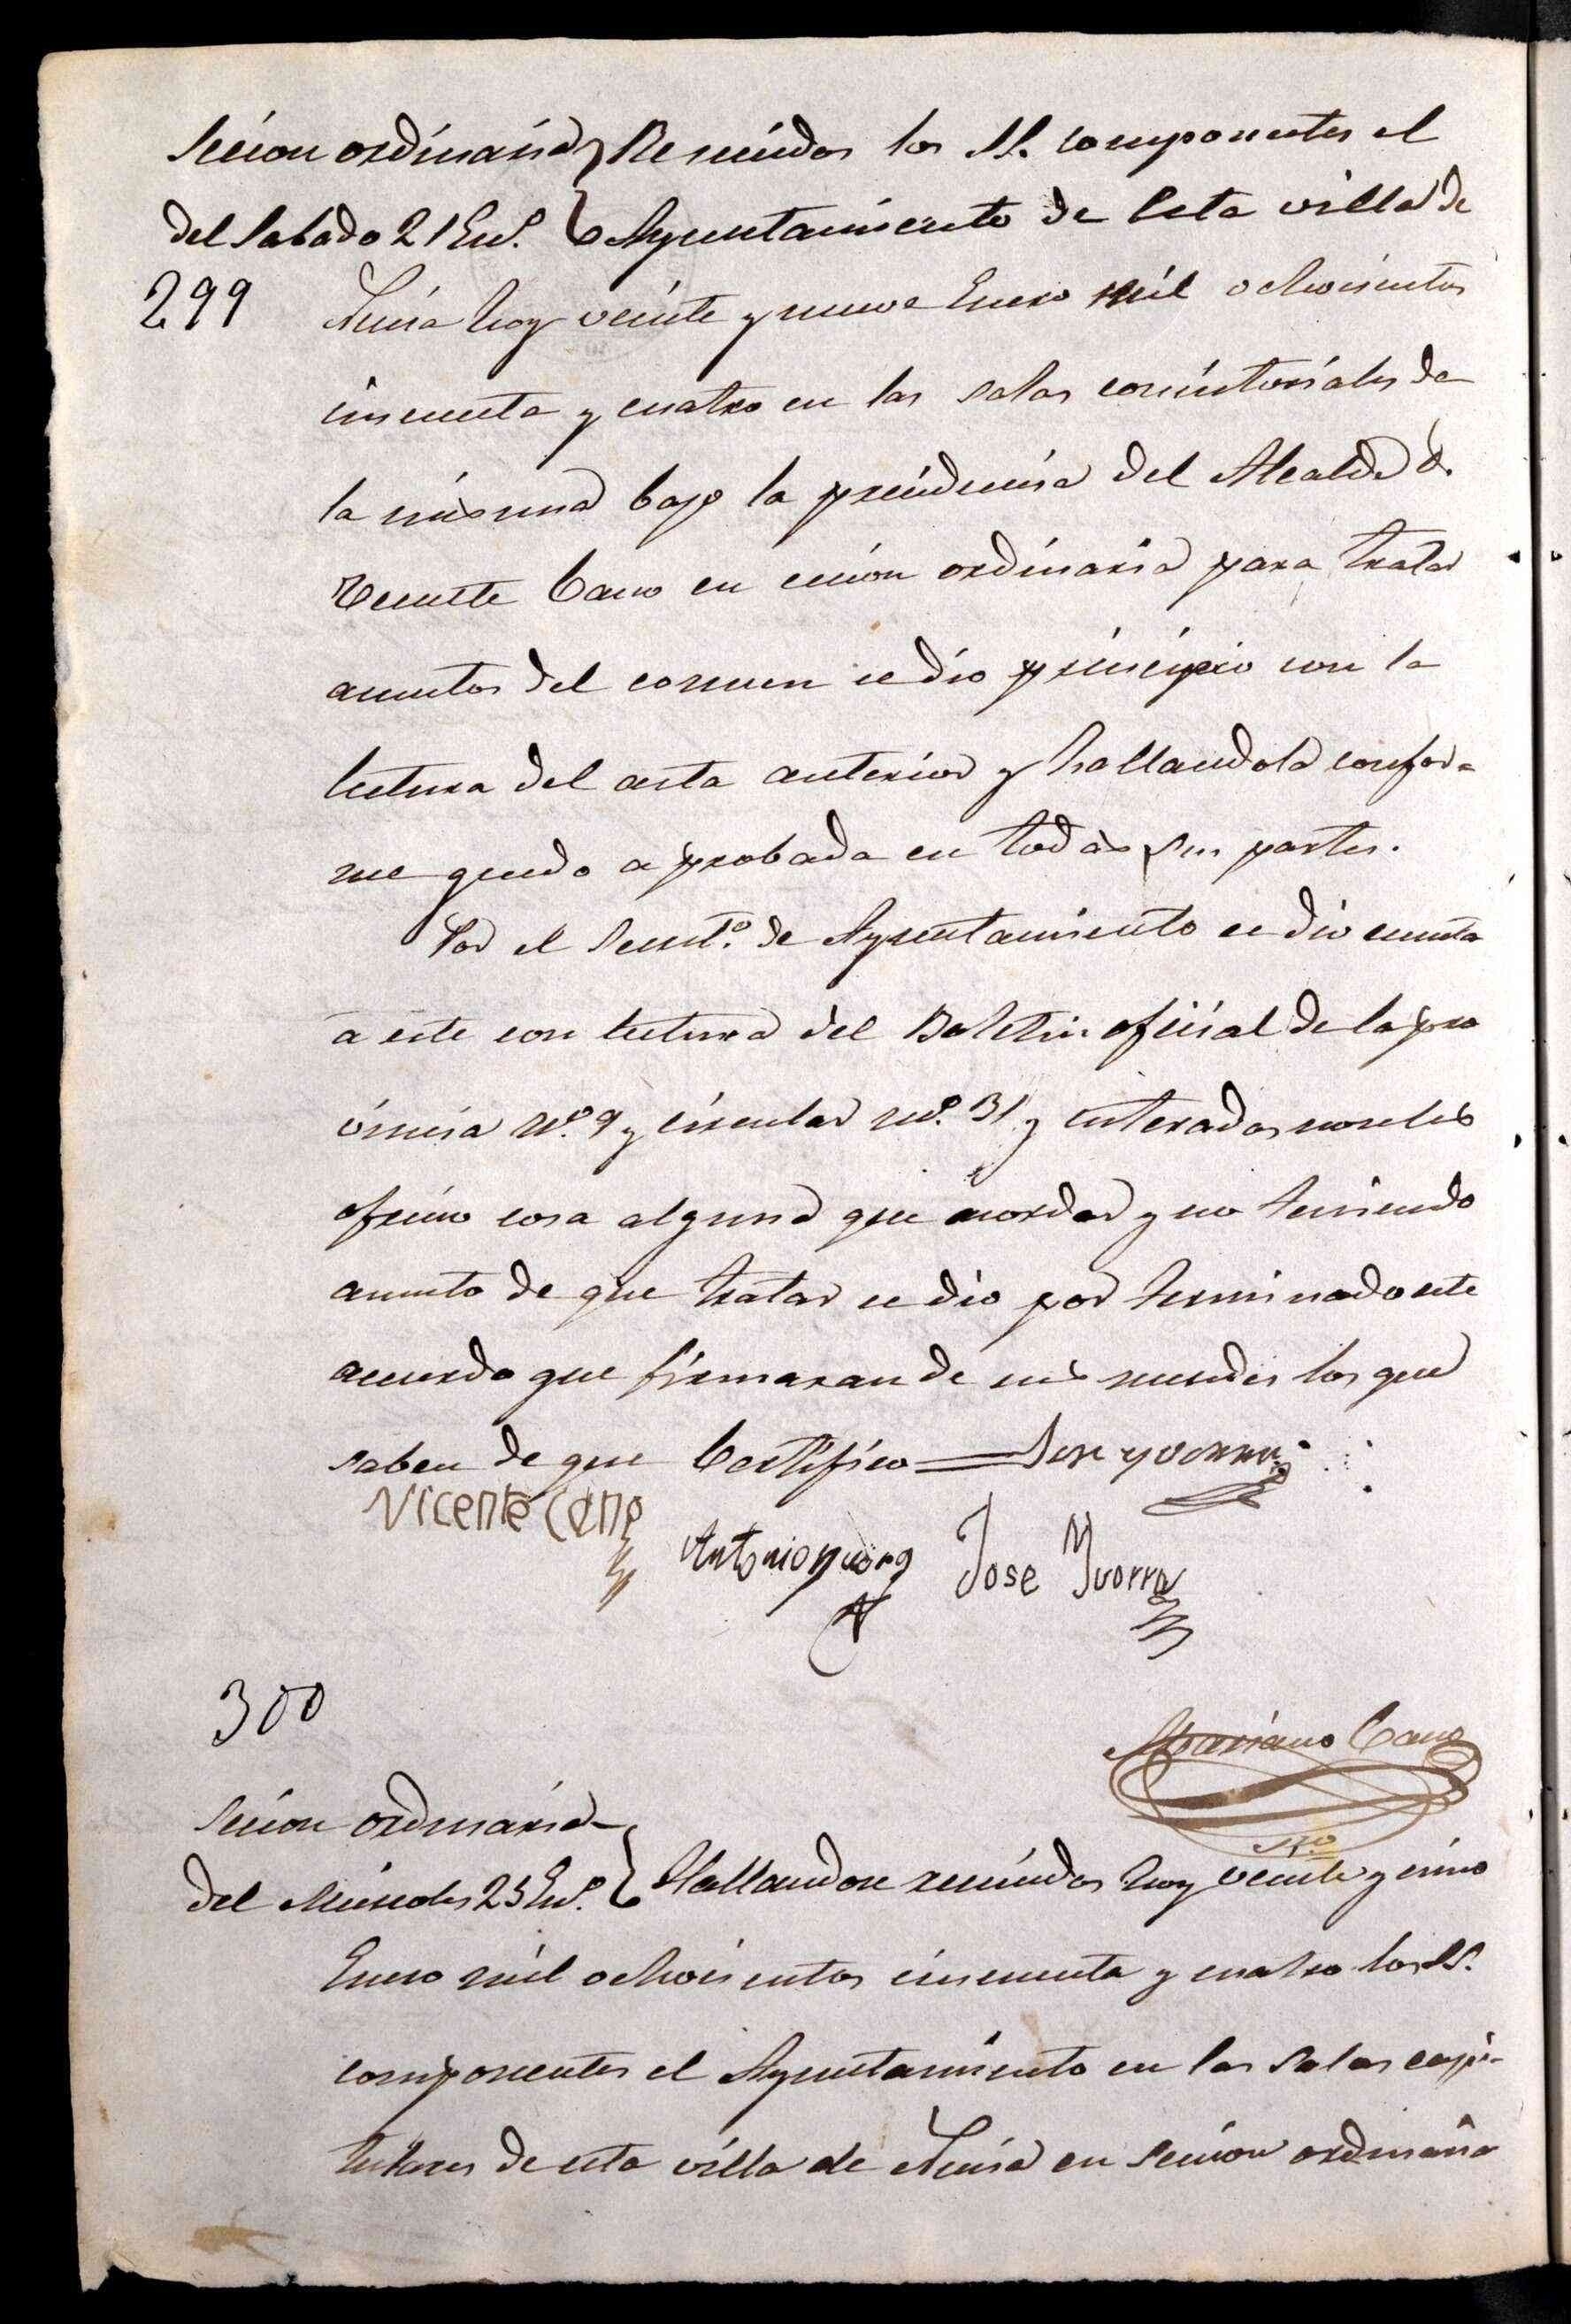 Secion ordinaria Reunidos los SS. componentes el
del Sabado 21 En.º Ayuntamiento de Esta villa de
299 Xixia hoy veinte y nueve Enero mil ochocientos
cincuenta y cuatro en las salas concistoriales de
la misma bajo la precidencia del Alcalde d.
Vicente Cano en cecion ordinaria para tratar
acuntos del comun ce dio principio con la
lectura del acta anterior y hallandola confor=
me quedo aprobada en todas sus partes.
Por el Secret.º de Ayuntamiento ce dio cuenta
a este con lectura del Boletin oficial de la pro
vincia N.º 9 y circular nu.º 31 y enterados no se les
ofrecio cosa alguna que acordar y no teniendo
acunto de que tratar ce dio por terminado este
acuerdo que firmaran de mis mendes los que
saben de que Certifico = Jose yvorra
Vicente Cano Antonio yvorra Jose Yvorra
300
Mariano Cano
Srio
Secion ordinaria
del Miercoles 25 En.º Hallandose reunidos hoy veinte y cinco
Enero mil ochocientos cincuenta y cuatro los SS.
componentes el Ayuntamiento en las salas capi-
tulares de esta villa de en Secion ordinaria